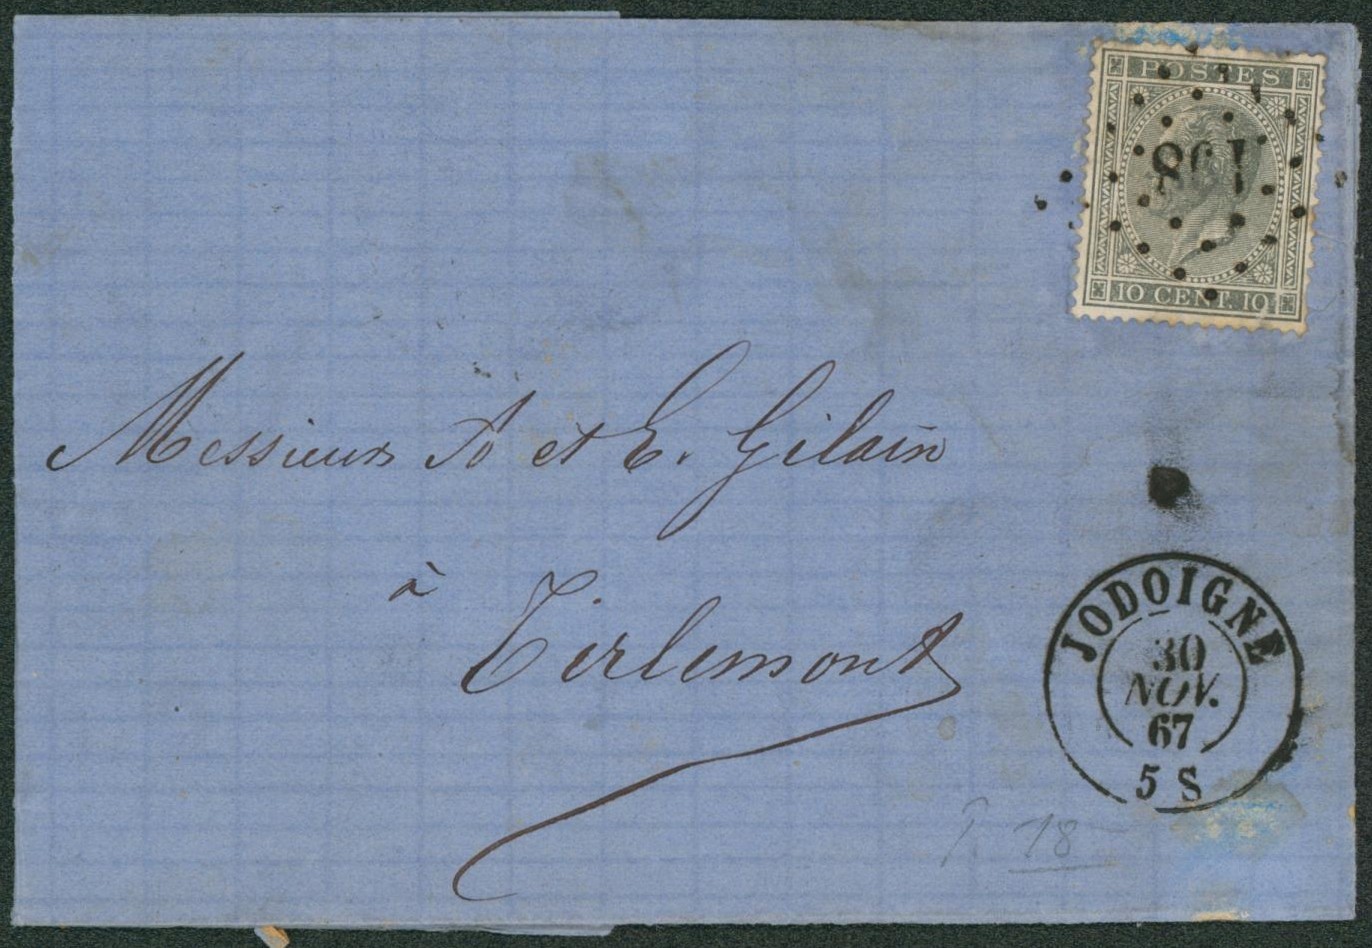 POSTES
10 CENT. 10
Messieurs A et E. Gilain
à
Tirlemont
JODOIGNE
30
NOV.
67
5 S
P. 18